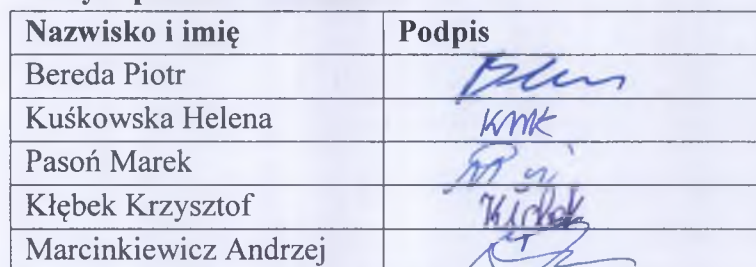 Nazwisko i imię Podpis
Bereda Piotr
Kuśkowska Helena
Pasoń Marek
Kłębek Krzysztof
Marcinkiewicz Andrzej